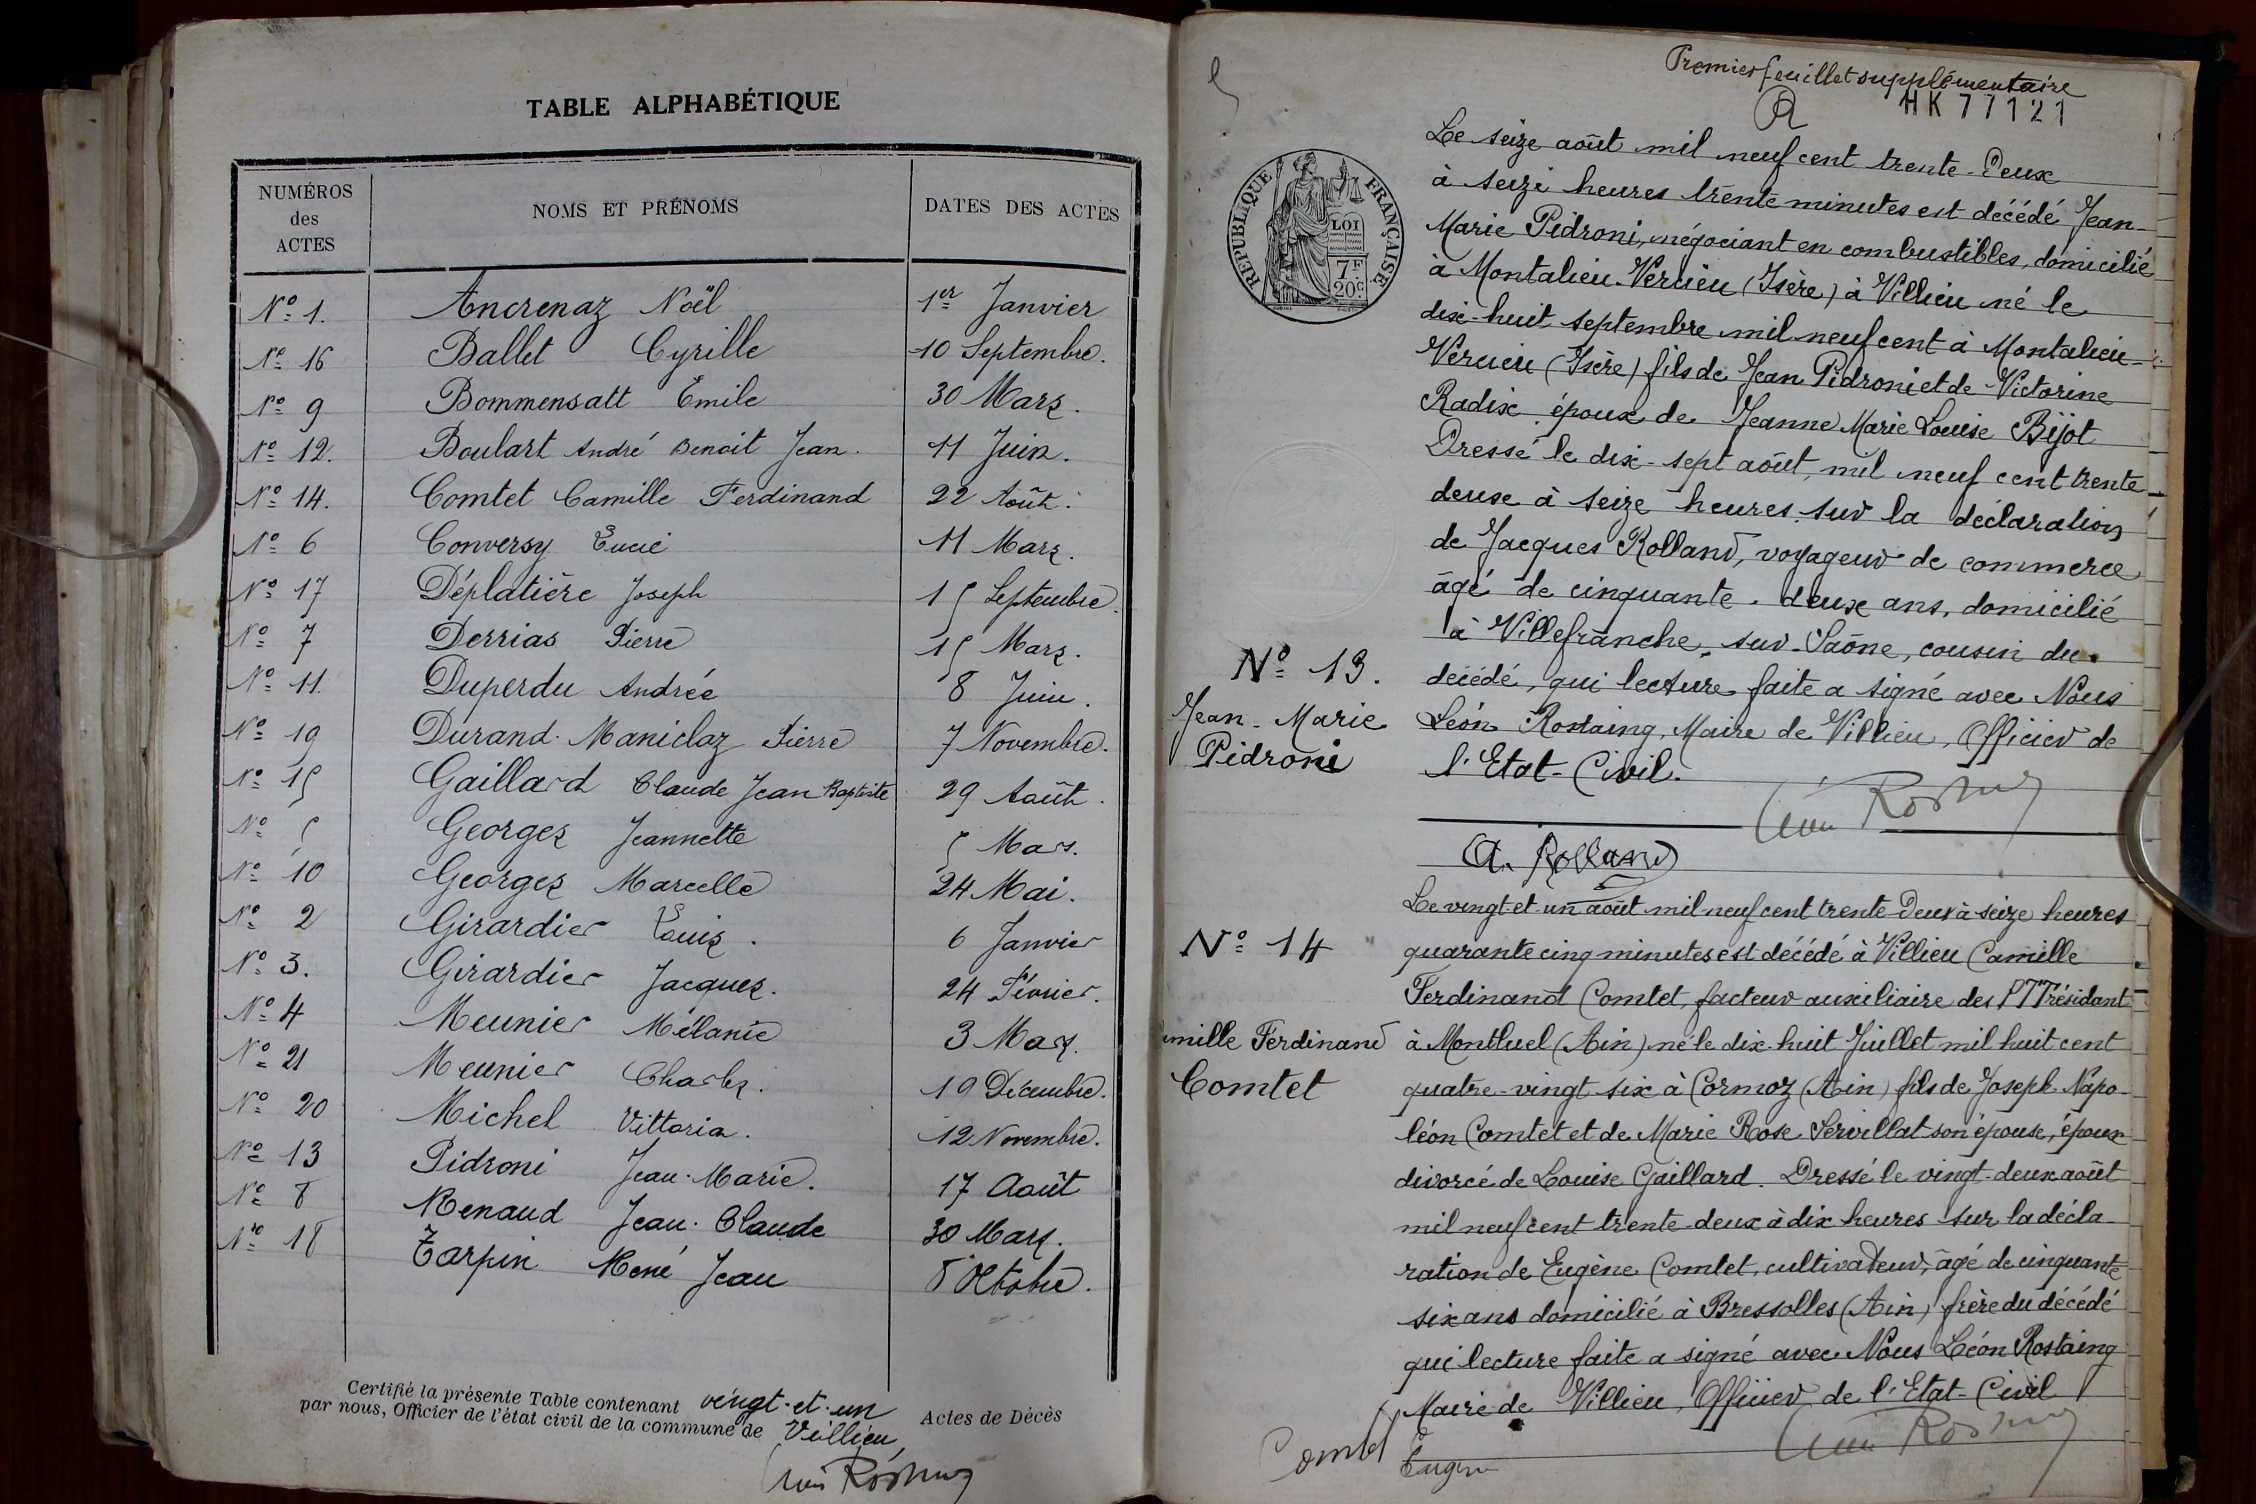 TABLE ALPHABÉTIQUE
NUMÉROS des ACTES
NOMS ET PRÉNOMS
DATES DES ACTES
Nº 1. Ancrenaz Noël 1er Janvier
Nº 16 Ballet Cyrille 10 Septembre.
Nº 9 Bommensatt Émile 30 Mars.
Nº 12. Boulart André Benoit Jean. 11 Juin.
Nº 14. Comtet Camille Ferdinand 22 Août.
Nº 6 Conversy Lucie 11 Mars.
Nº 17 Déplatière Joseph 15 Septembre.
Nº 7 Derrias Pierre 15 Mars.
Nº 11. Duperdu Andrée 8 Juin.
Nº 19 Durand-Maniclaz Pierre 7 Novembre.
Nº 15 Gaillard Claude Jean Baptiste 29 Août.
Nº 5 Georges Jeannette 5 Mars.
Nº 10 Georges Marcelle 24 Mai.
Nº 2 Girardier Louis. 6 Janvier
Nº 3. Girardier Jacques. 24 Février.
Nº 4 Meunier Mélanie 3 Mars.
Nº 21 Meunier Charles. 19 Décembre.
Nº 20 Michel Vittoria. 12 Novembre.
Nº 13 Pidroni Jean-Marie. 17 Août
Nº 8 Renaud Jean-Claude 30 Mars.
Nº 18 Tarpin René Jean 8 Octobre.
Certifié la présente Table contenant vingt-et-un Actes de Décès
par nous, Officier de l'état civil de la commune de Villieu,
Léon Rostaing
Premier feuillet supplémentaire
HK 77121
RÉPUBLIQUE FRANÇAISE
LOI
7F 20c
Le seize août mil neuf cent trente-deux
à seize heures trente minutes est décédé Jean-
Marie Pidroni, négociant en combustibles, domicilié
à Montalieu-Vercieu (Isère) à Villieu né le
dix-huit septembre mil neuf cent à Montalieu-
Vercieu (Isère) fils de Jean Pidroni et de Victorine
Radix époux de Jeanne Marie Louise Bijot
Dressé le dix-sept août, mil neuf cent trente
deux à seize heures, sur la déclaration
de Jacques Rolland, voyageur de commerce
âgé de cinquante-deux ans, domicilié
à Villefranche-sur-Saône, cousin du
décédé, qui lecture faite a signé avec Nous
Léon Rostaing, Maire de Villieu, Officier de
l'Etat-Civil.
Nº 13.
Jean-Marie
Pidroni
Léon Rostaing
A. Rolland
Le vingt-et-un août mil neuf cent trente-deux à seize heures
quarante cinq minutes est décédé à Villieu Camille
Ferdinand Comtet, facteur auxiliaire des PTT résidant
à Montluel (Ain) né le dix-huit Juillet mil huit cent
quatre-vingt-six à Cormoz (Ain) fils de Joseph-Napo-
léon Comtet et de Marie Rose Servillat son épouse, époux
divorcé de Louise Gaillard. Dressé le vingt-deux août
mil neuf cent trente-deux à dix heures sur la décla-
ration de Eugène Comtet, cultivateur, âgé de cinquante
six ans domicilié à Bressolles (Ain) frère du décédé
qui lecture faite a signé avec Nous Léon Rostaing
Maire de Villieu, Officier de l'Etat-Civil
Nº 14
mille Ferdinand
Comtet
Comtet Eugène
Léon Rostaing